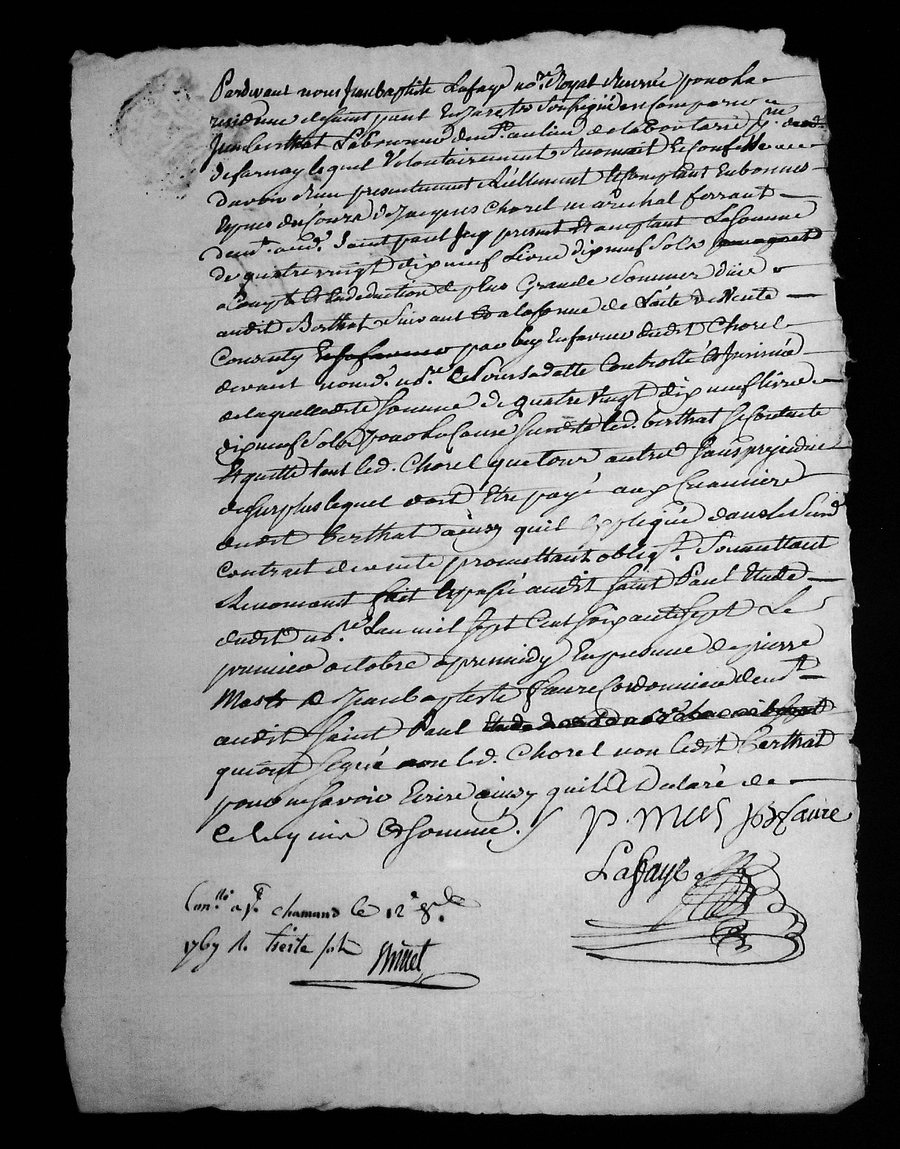 Pardevant nous Jean baptiste Lafaye no.re Royal Reservé pour la
residence de Saint paul En Jarest Soussigné En Comparu
Jean berthat Laboureur dem.t
de farnay lequel Volontairement Reconnait Et Confesse
d'avoir Reçu presentement Réellement Et Comptant En bonnes
Espèces de Cours de Jacques Chorel marechal ferrant
dem.t aud. Saint paul Icy present Et acceptant La Somme
de quatre vingt dix neuf Livre dix neuf Sols
a Compte Et En deduction de plus Grande Somme düe
audit Berthat Suivant Et a la forme de L'acte de Vente
Consenty par luy En faveur dudit Chorel
devant nousd. no.re Controllé Et Insinüé
de laquelle ditte Somme de quatre Vingt dix neuf livre
dix neuf Sols pour La Cause Susditte led. berthat Se Contente
Et quitte tant led. Chorel que tour autre Sans prejudice
du Surplus lequel doit Etre payé aux Creanciers
dudit berthat ainsy quil Expliqué dans le Susd
Contrat de vente promettant oblig.t Soumettant
Renonçant fait Et passé audit Saint Paul Etude
dudit no.re L'an mil Sept Cent Soixante Sept Le
premier octobre apres midy En presence de pierre
Mas Et Jean baptiste faure Cordonnier dem.t
audit Saint Paul
qui ont Signé non led. Chorel non ledit berthat
pour ne Savoir Ecrire ainsy quil a Declaré de
Ce Enquis Et Sommé.
P. Mas JB faure
Lafaye
Con.llé a S.t chamand le 12e 8.bre
1767 R. treize sols